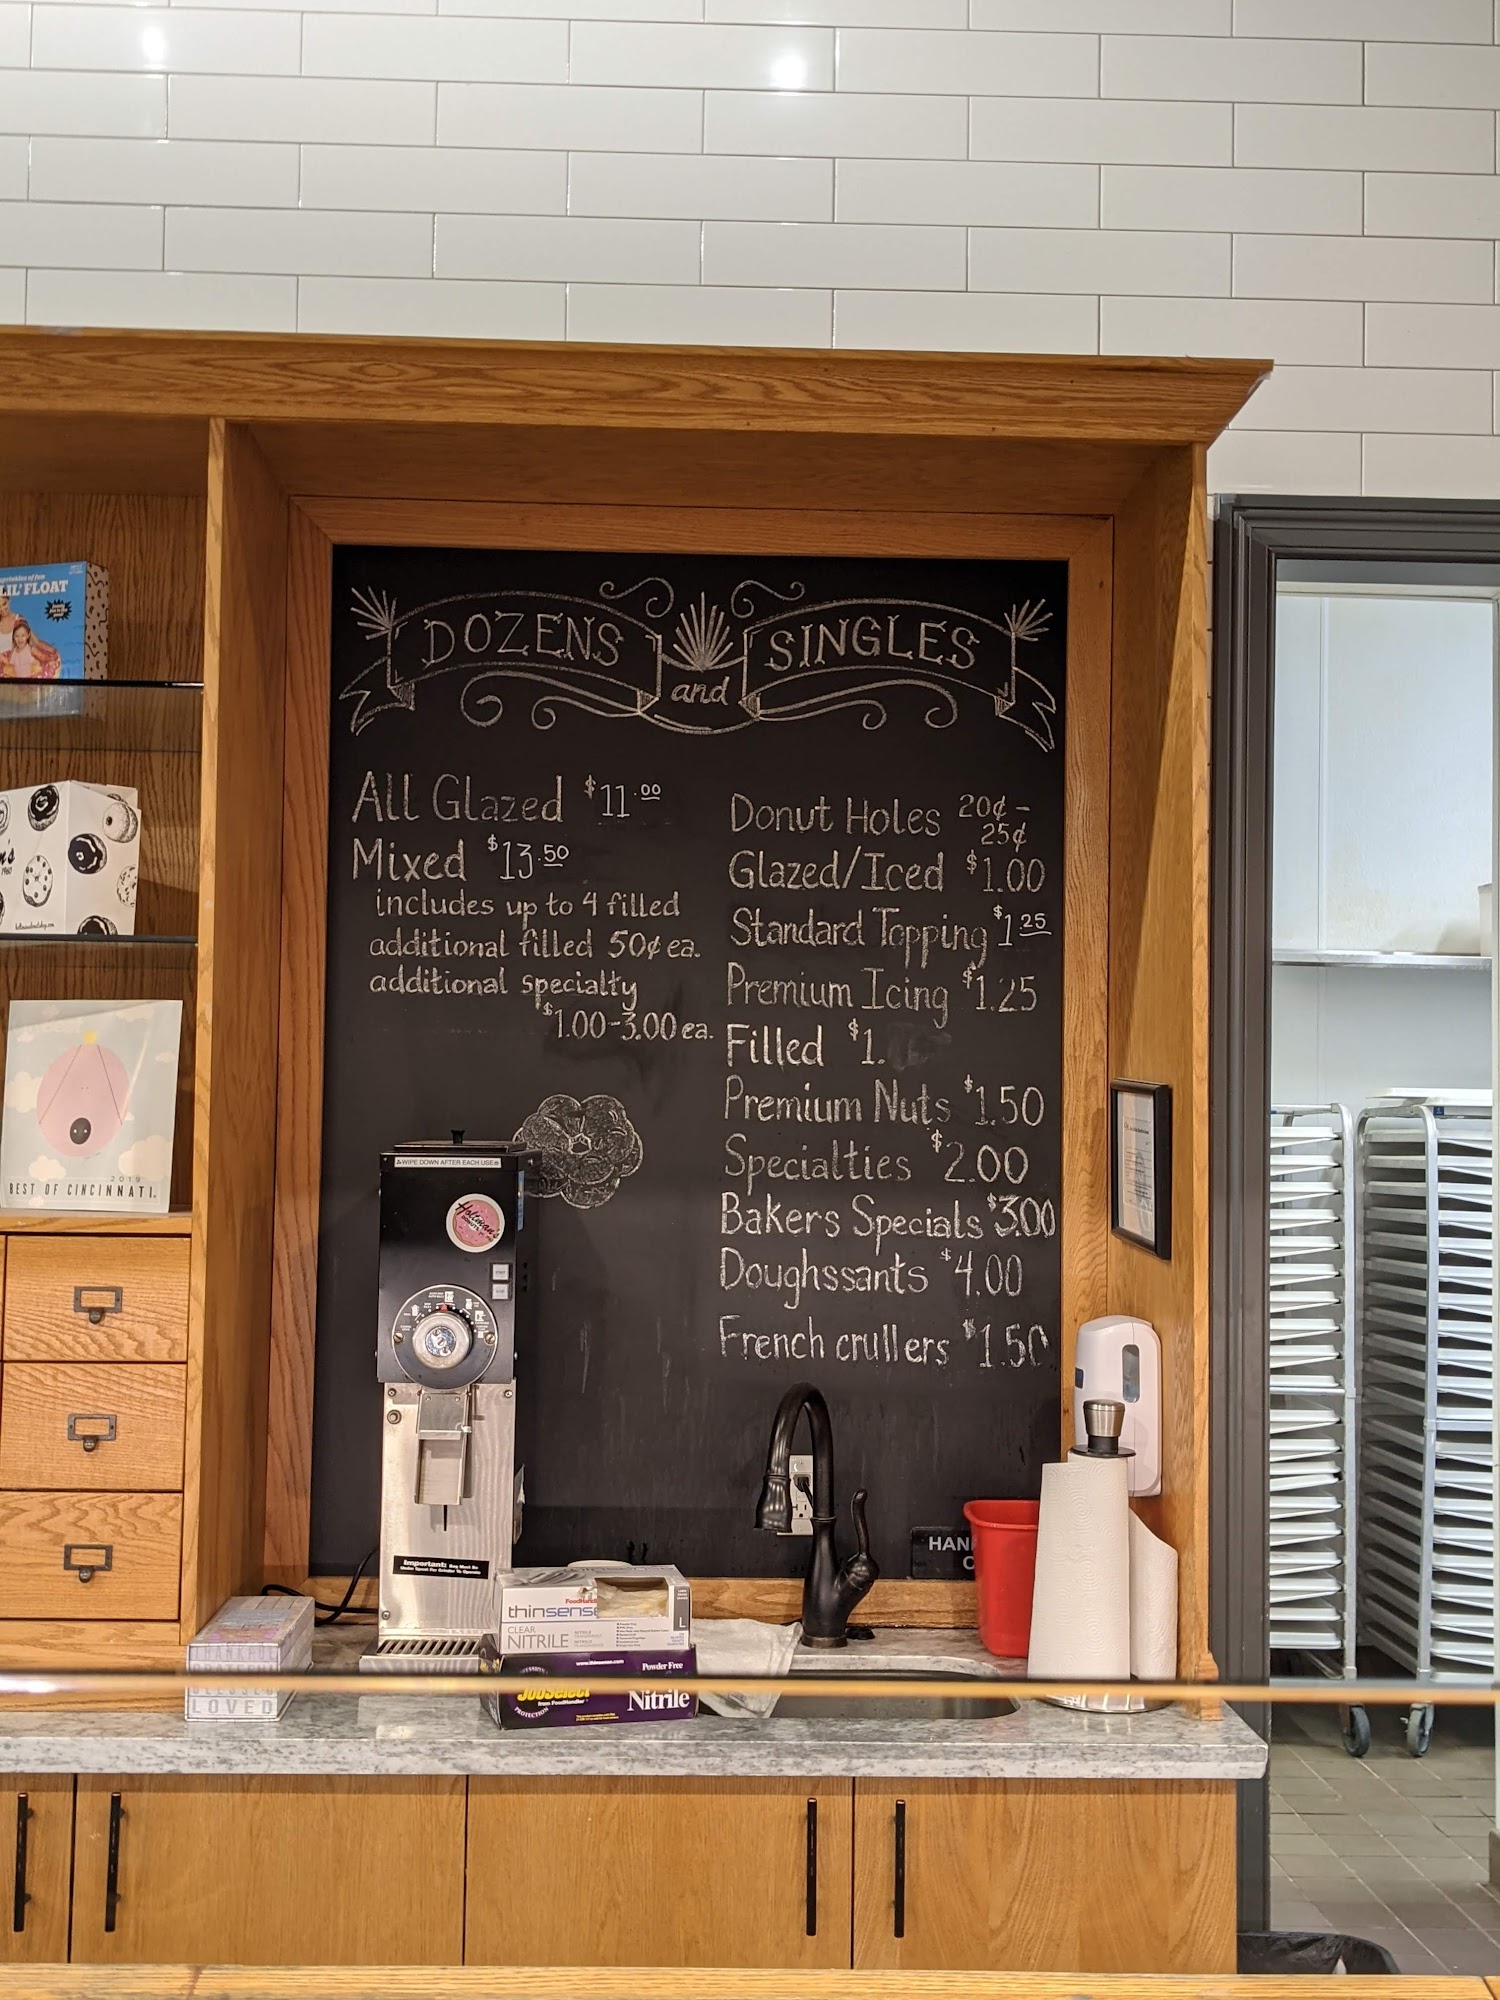 DOZENS and SINGLES
All Glazed $11.00
Mixed $13.50
includes up to 4 filled
additional filled 50¢ ea.
additional specialty
$1.00-3.00 ea.
Donut Holes 20¢ -
25¢
Glazed/Iced $1.00
Standard Topping $1.25
Premium Icing $1.25
Filled $1.
Premium Nuts $1.50
Specialties $2.00
Bakers Specials $3.00
Doughssants $4.00
French crullers $1.50
LIL' FLOAT
2019
BEST OF CINCINNATI.
WIPE DOWN AFTER EACH USE
Holtman's
Important: Bag Must Be
Under Spout For Grinder To Operate
FoodHandler
thinsense
CLEAR
NITRILE
L
www.thinsense.com
Powder Free
JobSelect
from FoodHandler
PROTECTION
Nitrile
THANKFUL
GRATEFUL
BLESSED
LOVED
HAN